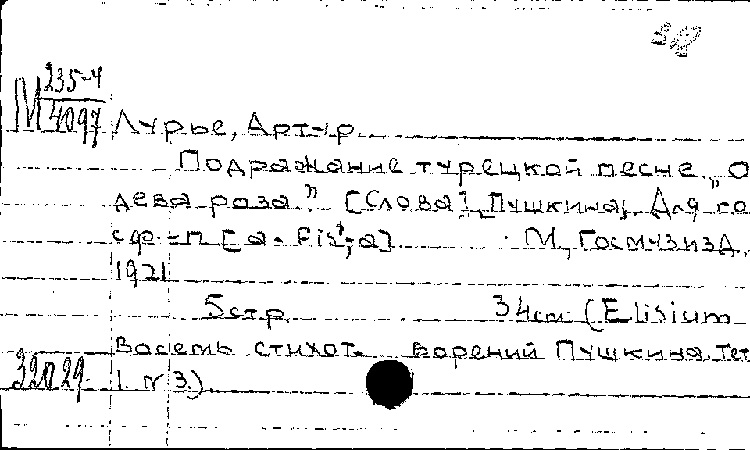 312
М 235-4
4097
Лурье, Артур.
Подражание турецкой песне "О
дева роза" [Слова] Пушкина, Для го
с ф-п [a - fis²; a] М, Госмузизд,
1921
5 стр. 34 cm (Elisium
Восемь стихот. ворений Пушкина. Тет
32029 1 № 3).